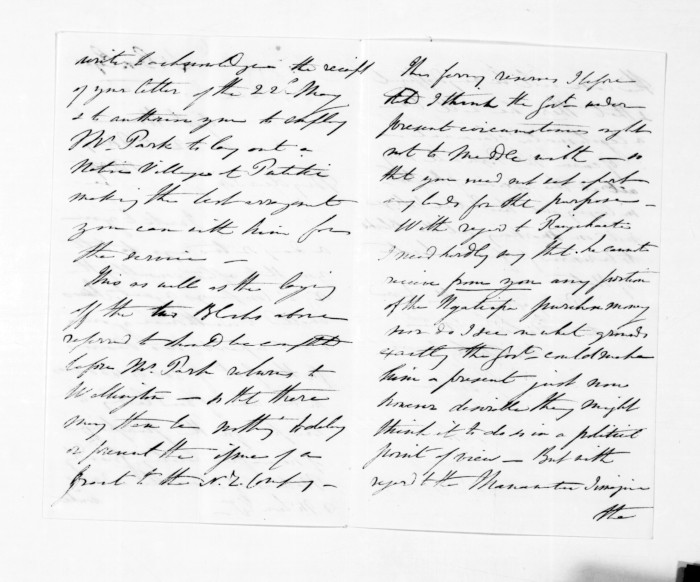 write to acknowledge the receipt
of your letter of the 22d May
& to authorise you to employ
Mr Park to lay out a
Native Village at Patitia
making the best arrangmt
you can with him for
the service —
This as well as the laying
off the two Blocks above
referred to should be completed
before Mr Park returns to
Wellington — so that there
may then be nothing to delay
or prevent the issue of a
Grant to the N.Z. Compy —
The ferry reserves I before
I think the Govt under
present circumstances ought
not to meddle with — so
that you need not set apart
any lands for that purpose —
With regard to Rangihaeata
I need hardly say that he cannot
receive from you any portion
of the Ngatiapa purchase money
nor do I see on what grounds
exactly the Govt could make
him a present just now
however desirable they might
think it to do so in a political
point of view — But with
regard to the Manawatu I imagine
the